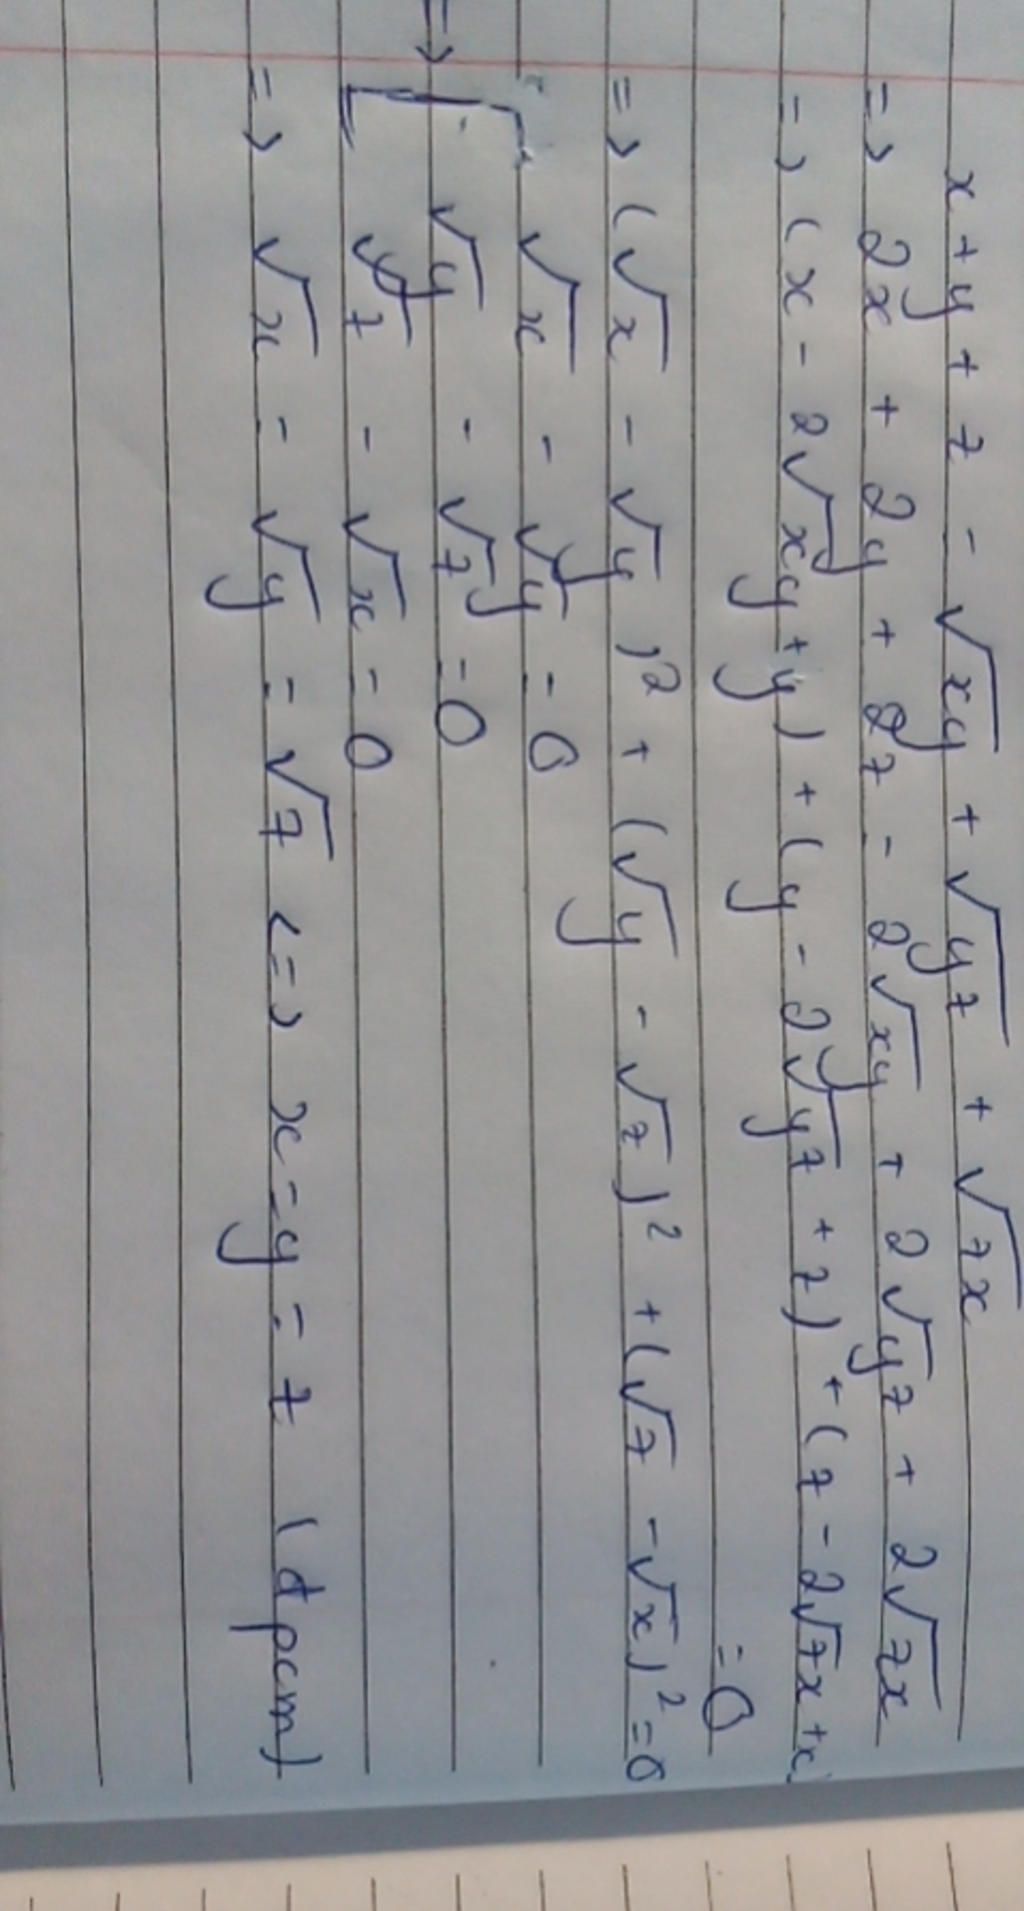 x + y + z = √xy + √yz + √zx
=> 2x + 2y + 2z = 2√xy + 2√yz + 2√zx
=> (x - 2√xy + y) + (y - 2√yz + z) + (z - 2√zx + x)
= 0
=> (√x - √y)² + (√y - √z)² + (√z - √x)² = 0
√x - √y = 0
=> √y - √z = 0
√z - √x = 0
=> √x = √y = √z <=> x = y = z (đpcm)